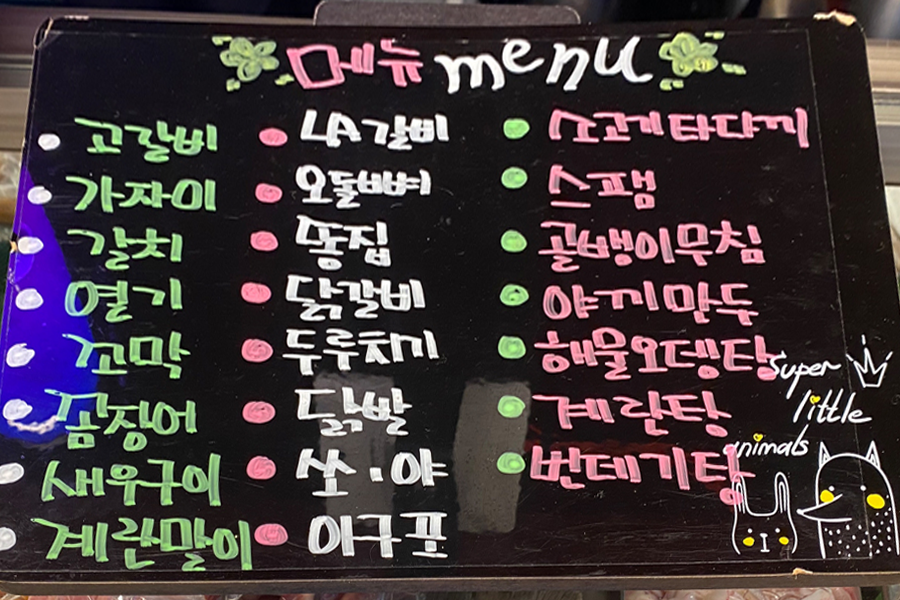 메뉴 menu
고갈비
가자미
갈치
열기
꼬막
곰장어
새우구이
계란말이
LA갈비
오돌뼈
똥집
닭갈비
두루치기
닭발
쏘·야
아구포
소고기타다끼
스팸
골뱅이무침
야끼만두
해물오뎅탕
계란탕
번데기탕
Super
little
animals